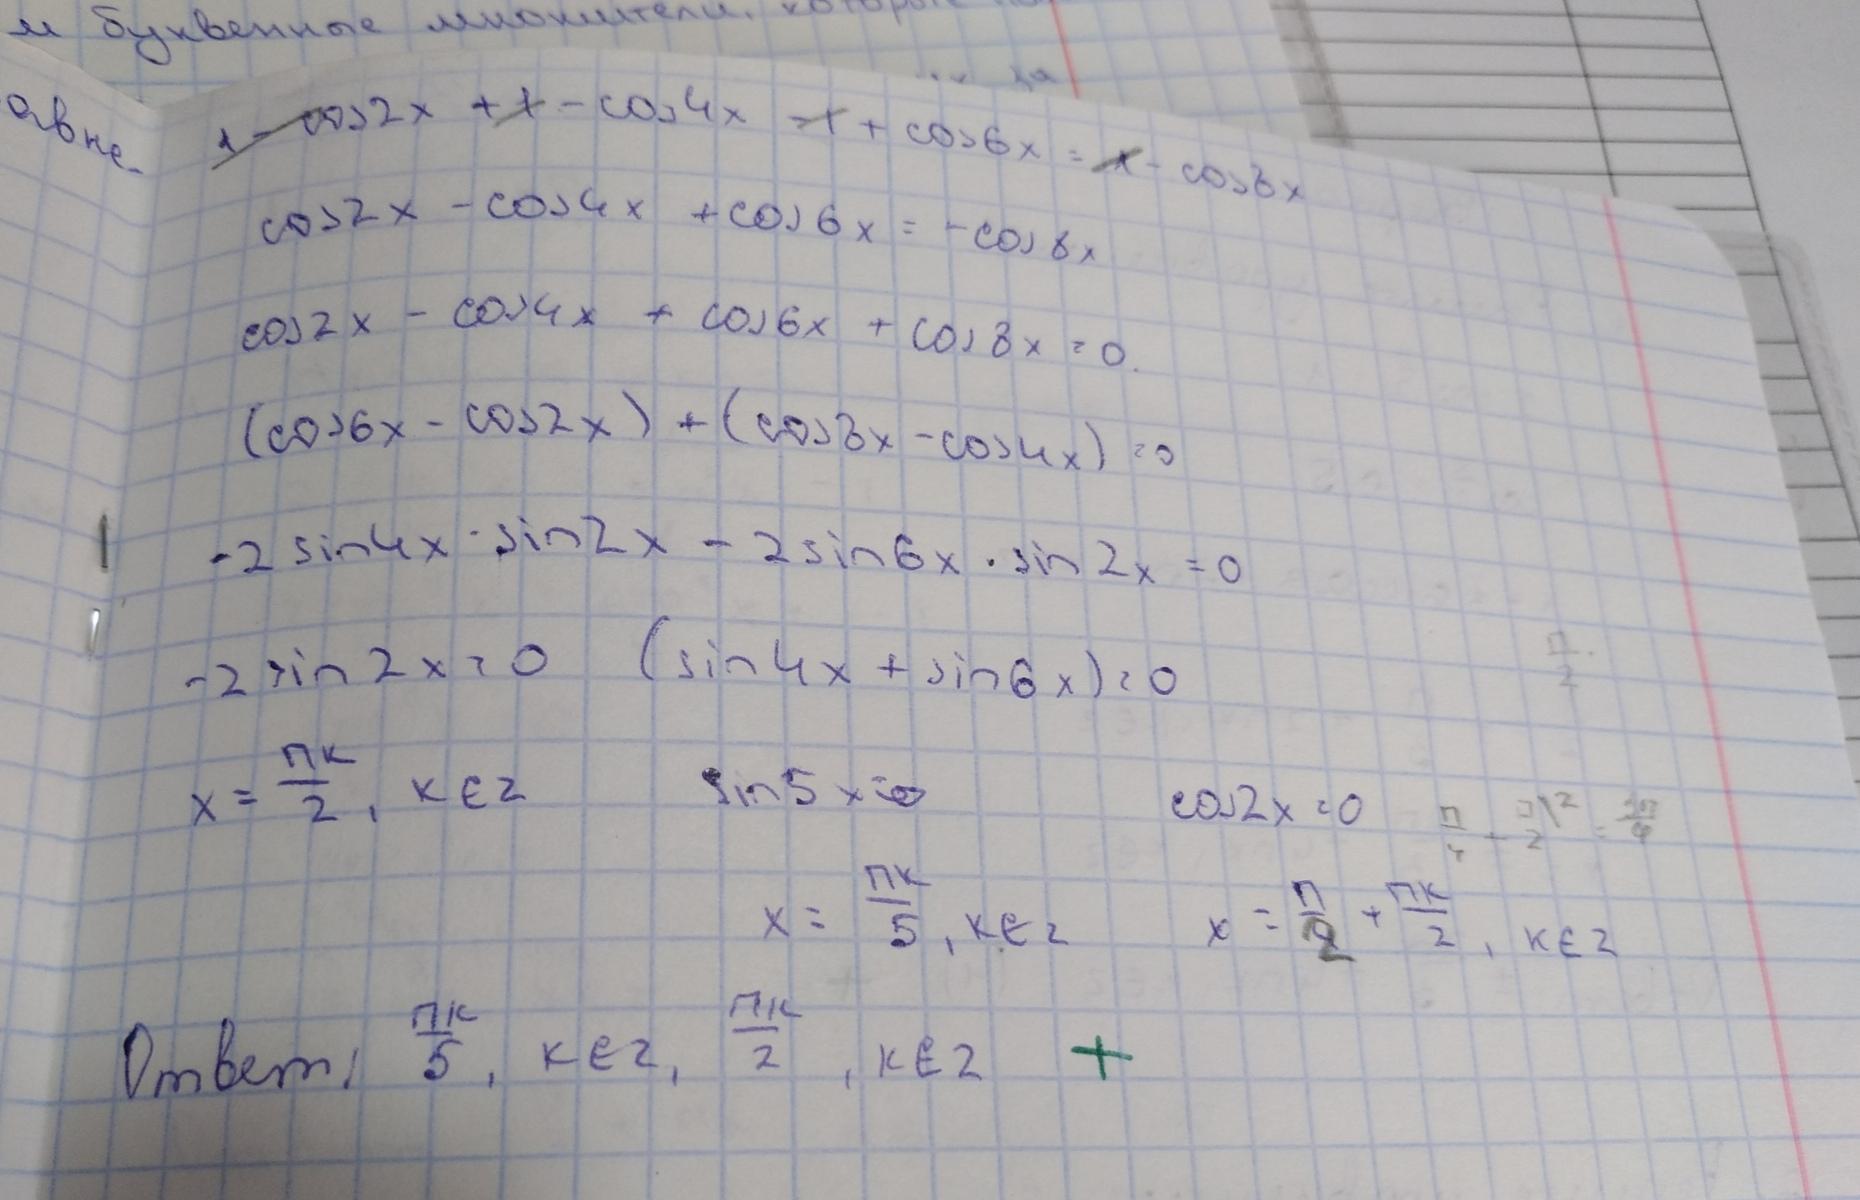 и буквенные множители, которые
за
авне-
1 - cos2x + 1 - cos4x - 1 + cos6x = 1 - cos8x
cos2x - cos4x + cos6x = - cos8x
cos2x - cos4x + cos6x + cos8x = 0.
(cos6x - cos2x) + (cos8x - cos4x) = 0
-2 sin4x · sin2x - 2 sin6x · sin2x = 0
-2 sin2x = 0 (sin4x + sin6x) = 0
π/2.
x = πк/2, к ∈ z sin5x = 0 cos2x = 0
x = πк/5, к ∈ z x = π/2 + πк/2, к ∈ z
Ответ: πк/5, к ∈ z, πк/2, к ∈ z +